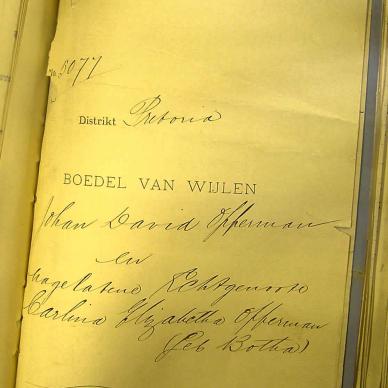 No. 5077
Distrikt Pretoria
BOEDEL VAN WIJLEN
Johan David Opperman
en
nagelatene Echtgenoote
Carlina Elizabetha Opperman
(Geb Botha)